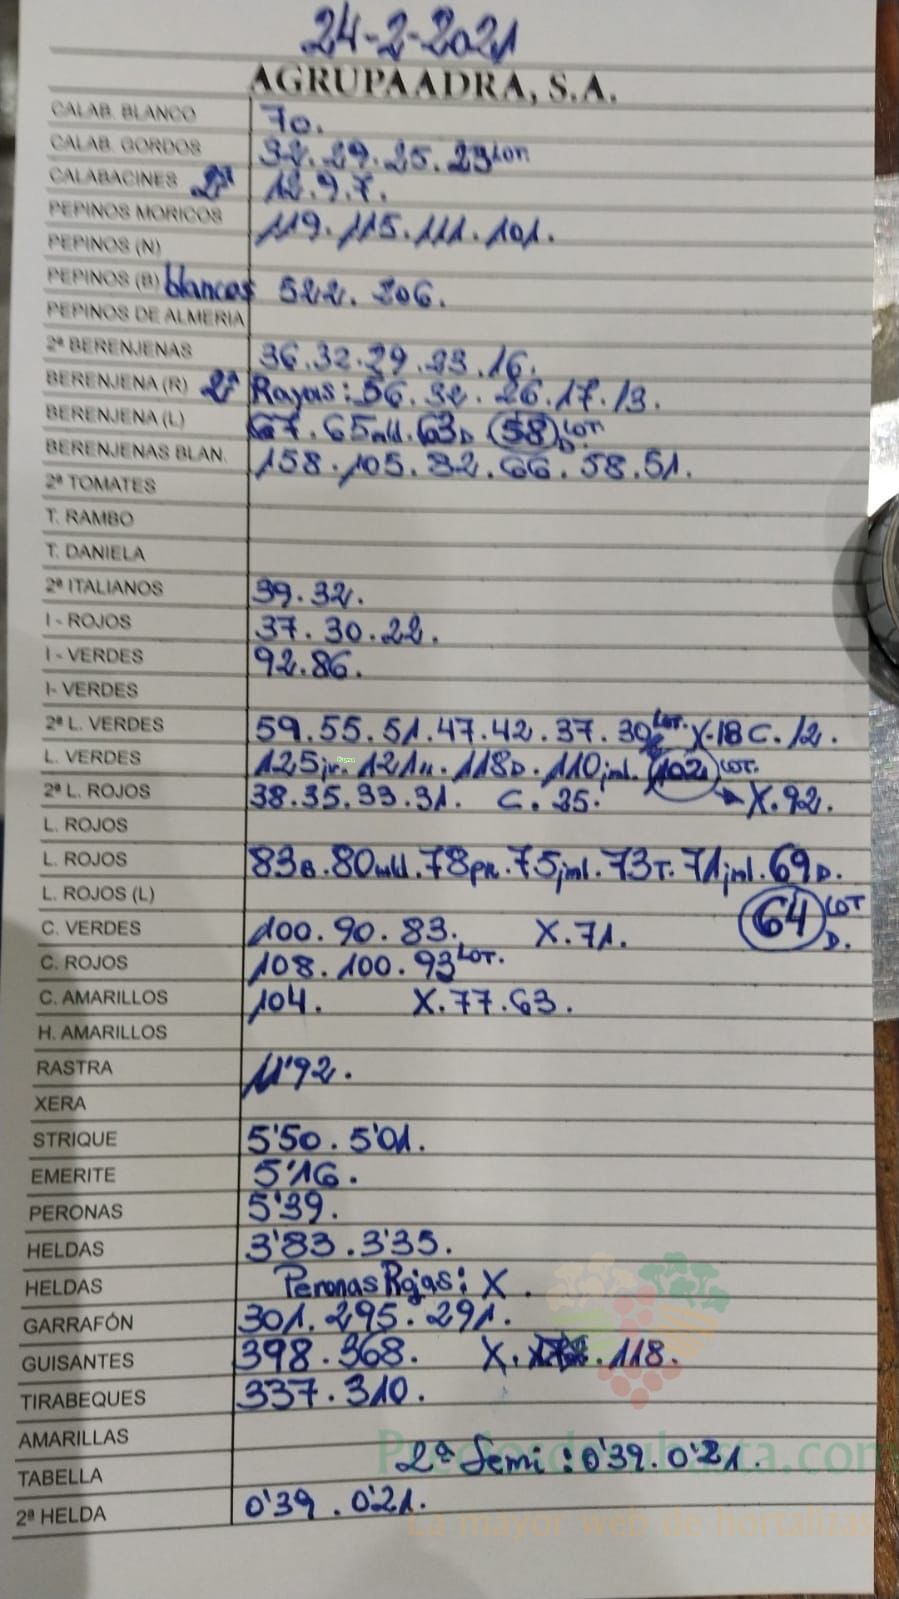 24-2-2021
AGRUPAADRA, S.A.
CALAB. BLANCO 70.
CALAB. GORDOS 32.29.25.23 LOT
CALABACINES 2ª 12.9.7.
PEPINOS MORICOS 119.115.111.101.
PEPINOS (N)
PEPINOS (B) blancos 522. 206.
PEPINOS DE ALMERIA
2ª BERENJENAS 36.32.29.23.16.
BERENJENA (R) 2ª Rayas: 56.32.26.17.13.
BERENJENA (L) 67.65mll.63D (58) LOT D.
BERENJENAS BLAN. 158.105.82.66.58.51.
2ª TOMATES
T. RAMBO
T. DANIELA
2ª ITALIANOS 39.32.
I - ROJOS 37.30.22.
I - VERDES 92.86.
I- VERDES
2ª L. VERDES 59.55.51.47.42.37.30 LOT. X.18 C.12.
L. VERDES 125jr.121u.118D.110jml.(102) LOT.
2ª L. ROJOS 38.35.33.31. C.25. X.92.
L. ROJOS
L. ROJOS 83B.80mll.78pr.75jml.73T.71jml.69D.
L. ROJOS (L) (64) LOT D.
C. VERDES 100.90.83. X.71.
C. ROJOS 108.100.93 LOT.
C. AMARILLOS 104. X.77.63.
H. AMARILLOS
RASTRA 11'92.
XERA
STRIQUE 5'50.5'01.
EMERITE 5'16.
PERONAS 5'39.
HELDAS 3'83.3'35.
HELDAS Peronas Rojas: X.
GARRAFÓN 301.295.291.
GUISANTES 398.368. X. .118.
TIRABEQUES 337.310.
AMARILLAS
Preciosdesubasta.com
TABELLA 2ª Semi: 0'39.0'21
2ª HELDA 0'39.0'21.
La mayor web de hortalizas